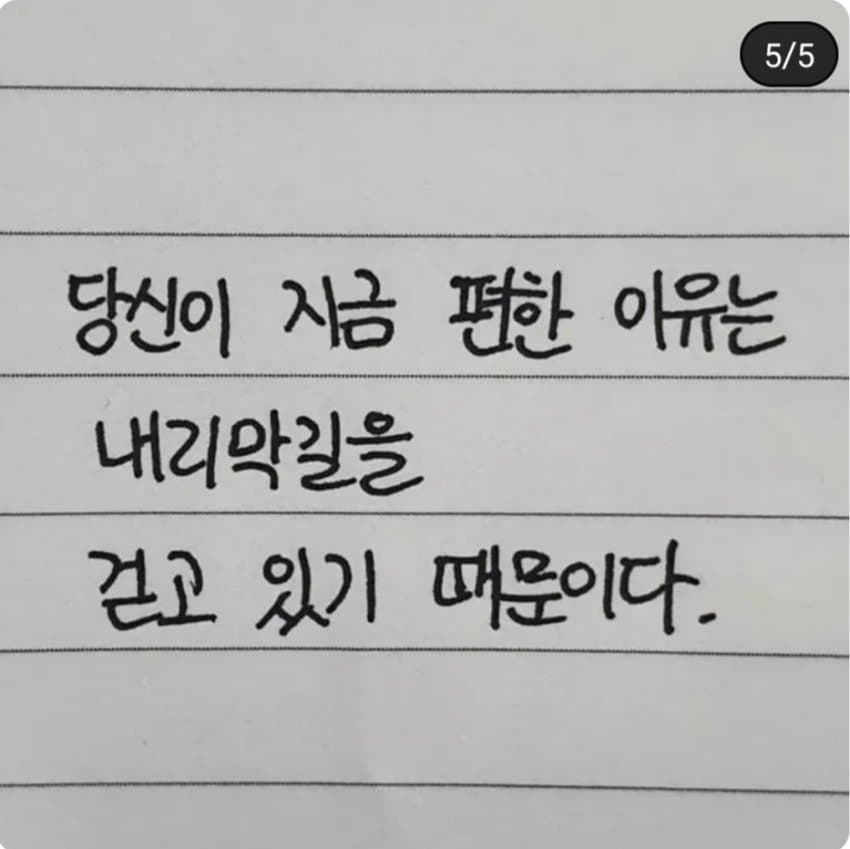 5/5
당신이 지금 편한 이유는
내리막길을
걷고 있기 때문이다.